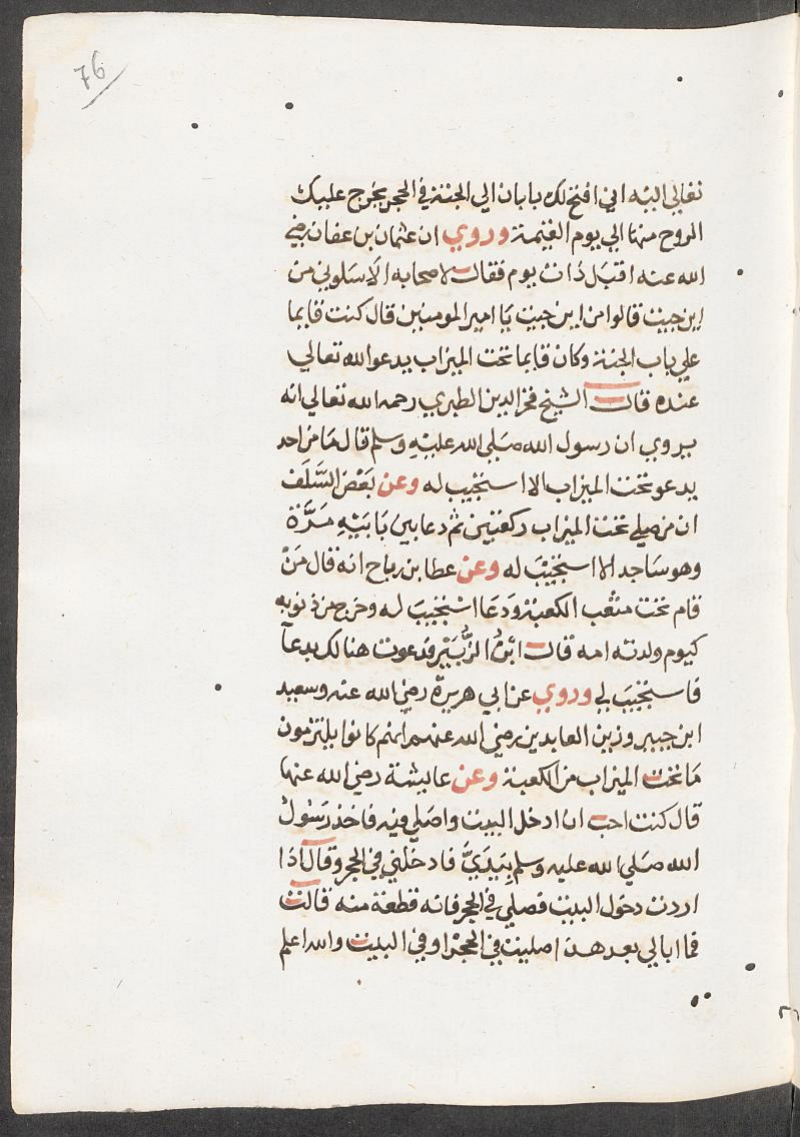 76
تعالي اليه اني افتح لك بابان الي الجنة في الحجر يخرج عليك
الروح منها الي يوم القيمة وروي ان عثمان بن عفان رضي
الله عنه اقبل ذات يوم فقال لاصحابه الا تسلوني من
اين جيت قالوا من اين جيت يا امير المومنين قال كنت قايما
علي باب الجنة وكان قايما تحت الميزاب يدعو الله تعالي
عنده قال الشيخ فخر الدين الطبري رحمه الله تعالي انه
يروي ان رسول الله صَلي الله عليْهِ وسلم قال مَا من احد
يدعو تحت الميزاب الا استجيب له وعن بَعْض السَّلَف
ان من صلي تحت الميزاب ركعتين ثم دعا بين يَا بَيْهِ مَرَّة
وهو سَاجد الا استجيْبَ له وعن عطا بن رباح انه قال مَنْ
قام تحت مثعَب الكعبة وَدعَا استجيبَ له وخرج من ذنوبه
كيوم ولدته امه قال ابْنُ الزُّبَيْر فدعوت هنالك بدعآ
فاستجيبَ لي وروي عن ابي هريرة رضي الله عنه وسعيد
ابن جبير وزين العابدين رضي الله عنهم انهم كانوا يلتزمون
مَا تحت الميزاب من الكعبة وعن عايشة رضي الله عنها
قال كنت احب ان ادخل البيت واصَلي فيه فاخذ رَسُولُ
الله صَلي الله عليه وسلم بِيَدِيَّ فادخَلني في الحجر وقال اذا
اردت دخول البيت فصلي في الحجر فانه قطعة منه قالت
فما ابالي بعد هذا صليت في الحجْر او في البيت والله اعلم